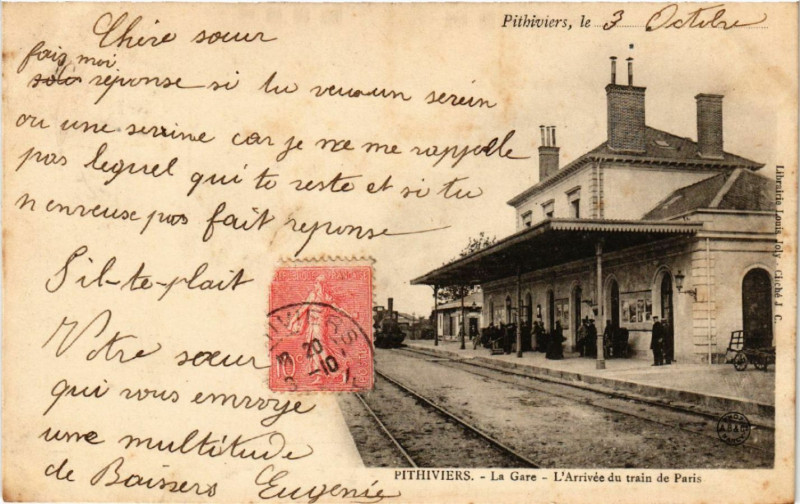 Pithiviers, le 3 Octobre
Chère sœur
fais moi
réponse si tu veux un serein
ou une sereine car je ne me rappelle
pas lequel qui te reste et si tu
n en veuse pas fait reponse
S'il-te-plait
Votre sœur
qui vous envoye
une multitude
de Baisers Eugenie
10c
20
10
Librairie Louis Joly - Cliché J. C.
PITHIVIERS. - La Gare - L'Arrivée du train de Paris